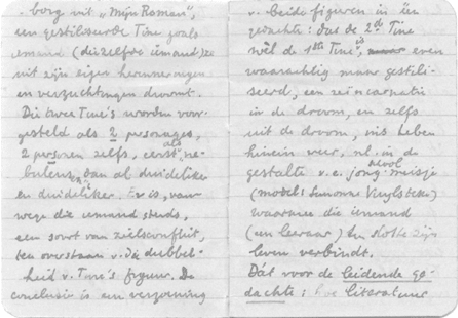 borg uit "Mijn Roman",
een gestileerde Tine zoals
iemand (diezelfde iemand) ze
uit zijn eigen herinneringen
en verzuchtingen droomt.
Die twee Tine's worden voor-
gesteld als 2 personages,
2 personen zelfs, eerst als ne-
buleus, dan al duidelijker
en duidelijker. Er is, van-
wege die iemand steeds,
een soort van zielsconflict,
ten overstaan v. die dubbel-
heid v. Tine's figuur. De
conclusie is een verzoening
v. beide figuren in één
gedachte: dat de 2de Tine
wèl de 1ste Tine is, even
waarachtig maar gestili-
seerd, een reïncarnatie
in de droom, en zelfs
uit de droom, ins Leben
hinein weer, nl. in de
gestalte v. e. jong meisje
(model: Simonne Vinylsteke)
waarmee die iemand
(een leeraar) ten slotte zijn
leven verbindt.
Dát voor de leidende ge-
dachte: literatuur